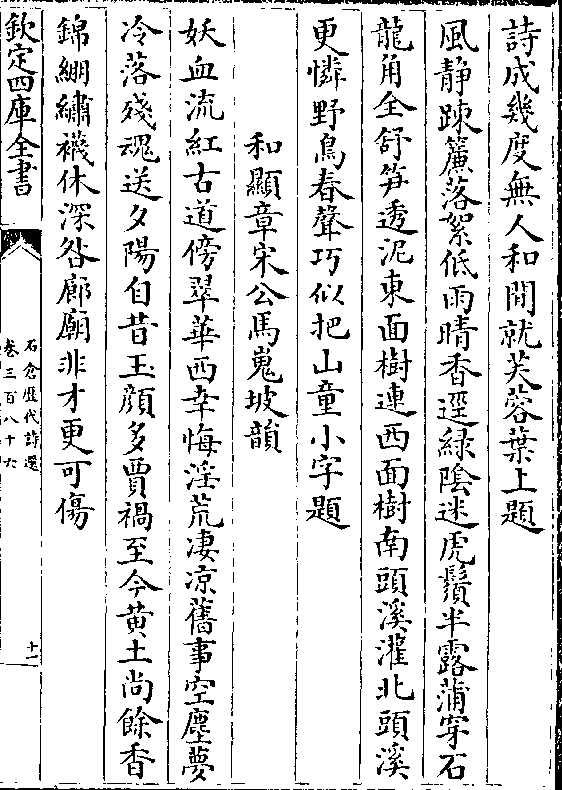 詩成幾度無人和閒就芙蓉葉上題
風静踈簾落絮低雨晴香逕緑陰迷虎鬚半露蒲穿石
龍角全舒笋透泥東面樹連西面樹南頭溪灌北頭溪
更憐野鳥春聲巧似把山童小字題
和顯章宋公馬嵬坡韻
妖血流紅古道傍翠華西幸悔淫荒凄凉舊事空塵夢
冷落殘魂送夕陽自昔玉顔多賈禍至今黄土尚餘香
錦綳繡襪休深咎廊廟非才更可傷
欽定四庫全書
石倉歴代詩選
卷三百八十六
十一